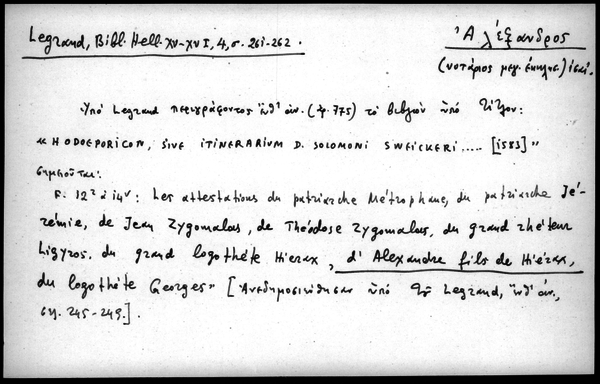 Legrand, Bibl. Hell. XV-XVI, 4, σ. 261-262.
Ἀλέξανδρος
(νοτάριος μεγ. ἐκκλησ.)
Ὑπὸ Legrand περιγράφοντος ἔνθ' ἀν. (ἀρ. 775) τὸ βιβλίον ὑπὸ τίτλον:
"HODOEPORICON, SIVE ITINERARIUM D. SOLOMONI SWEICKERI ..... [1583]"
σημειοῦται:
F. 12 à 14 v: Les attestations du patriarche Métrophane, du patriarche Jé-
rémie, de Jean Zygomalas, de Théodose Zygomalas, du grand rhéteur
Ligyros, du grand logothéte Hierax, d'Alexandre fils de Hiérax,
du logothéte Georges" [Ἀνεδημοσιεύθησαν ὑπὸ τοῦ Legrand, ἔνθ' ἀν.,
σσ. 245-249.].